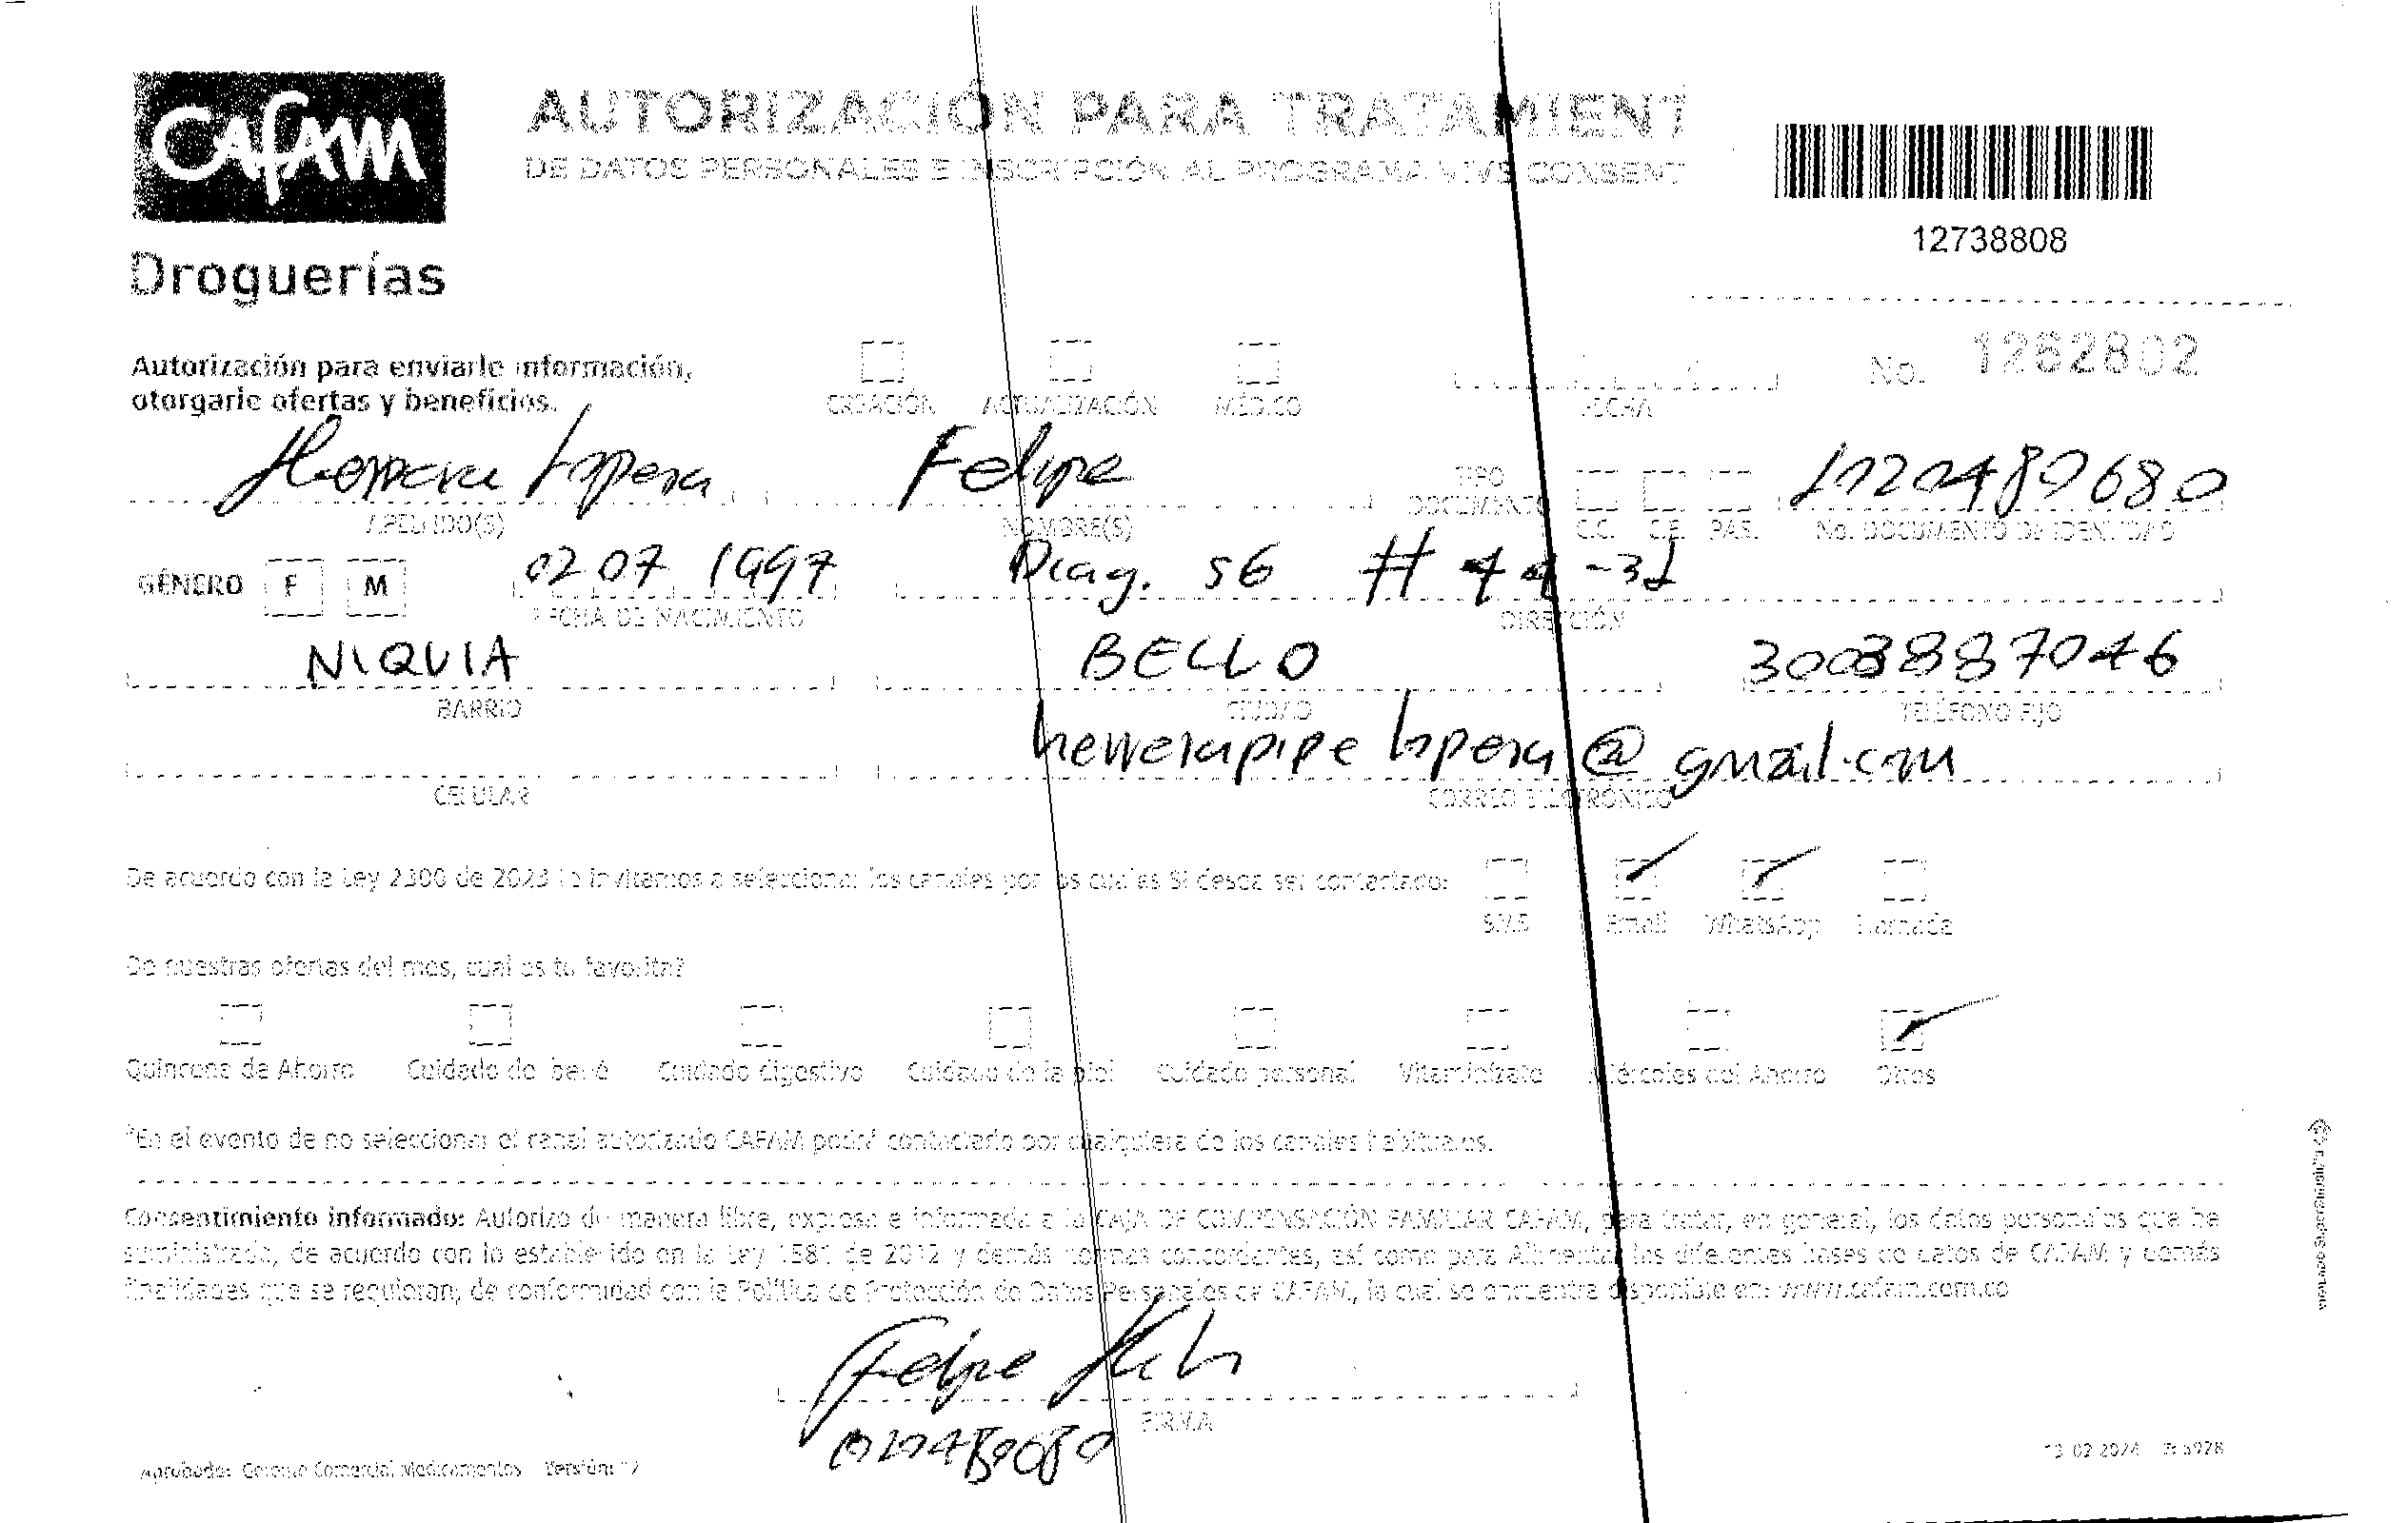 CAFAM
Droguerías
AUTORIZACIÓN PARA TRATAMIENT
DE DATOS PERSONALES E INSCRIPCIÓN AL PROGRAMA VIVE CONSENT
12738808
Autorización para enviarle información,
otorgarle ofertas y beneficios.
CREACIÓN ACTUALIZACIÓN MÉDICO FECHA No. 1262802
Herrera Lopera Felipe
APELLIDO(S) NOMBRE(S) TIPO DOCUMENTO C.C. C.E. PAS. No. DOCUMENTO DE IDENTIDAD
GÉNERO F M 02 07 1997 Diag. 56 # 44-31
FECHA DE NACIMIENTO DIRECCIÓN
NIQUIA BELLO 3008887046
BARRIO CIUDAD TELÉFONO FIJO
herrerapipelopera@gmail.com
CELULAR CORREO ELECTRÓNICO
De acuerdo con la Ley 2300 de 2023 lo invitamos a seleccionar los canales por los cuales SI desea ser contactado:
SMS Email WhatsApp Llamada
De nuestras ofertas del mes, cual es tu favorita?
Quincena de Ahorro Cuidado de bebé Cuidado digestivo Cuidado de la piel Cuidado personal Vitamínizate Miércoles del Ahorro Otros
*En el evento de no seleccionar el canal autorizado CAFAM podrá contactarlo por cualquiera de los canales habituales.
Consentimiento informado: Autorizo de manera libre, expresa e informada a la CAJA DE COMPENSACIÓN FAMILIAR CAFAM, para tratar, en general, los datos personales que he
suministrado, de acuerdo con lo establecido en la Ley 1581 de 2012 y demás normas concordantes, así como para Alimentar las diferentes bases de datos de CAFAM y demás
finalidades que se requieran, de conformidad con la Política de Protección de Datos Personales de CAFAM, la cual se encuentra disponible en: www.cafam.com.co
Felipe
FIRMA
Aprobado: Gerente Comercial Medicamentos Versión: 12
13-02-2024
VIGILADO SuperSubsidio